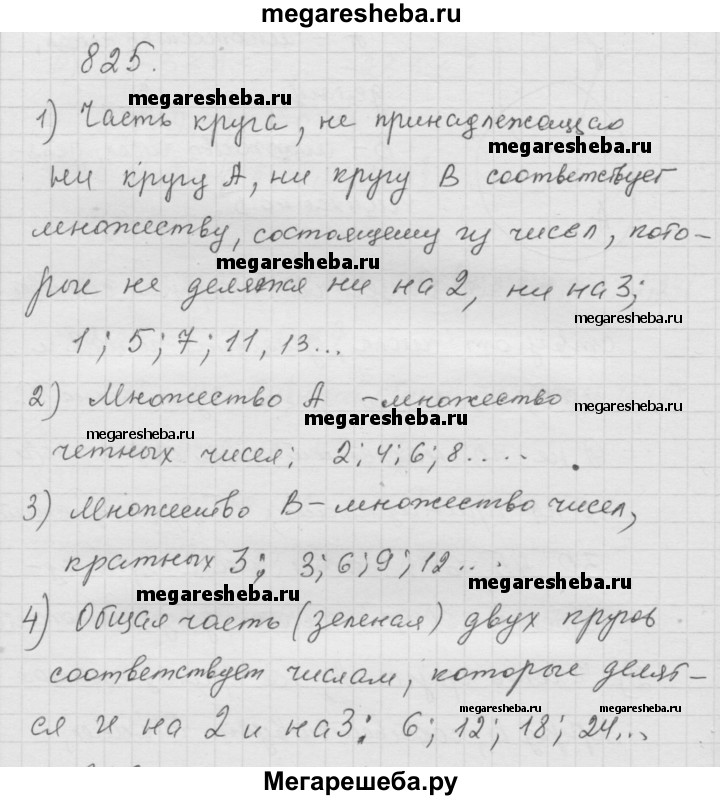 megaresheba.ru
825.
megaresheba.ru
1) Часть круга, не принадлежащая
megaresheba.ru
ни кругу А, ни кругу В соответствует
множеству, состоящему из чисел, кото-
megaresheba.ru
рые не делятся ни на 2, ни на 3;
megaresheba.ru
1; 5; 7; 11, 13...
2) Множество А - множество
megaresheba.ru
megaresheba.ru
megaresheba.ru
четных чисел; 2; 4; 6; 8....
3) Множество В - множество чисел,
кратных 3; 3; 6; 9; 12...
megaresheba.ru
megaresheba.ru
4) Общая часть (зеленая) двух кругов
соответствует числам, которые делят-
megaresheba.ru
megaresheba.ru
ся и на 2 и на 3: 6; 12; 18; 24...
Мегарешеба.ру